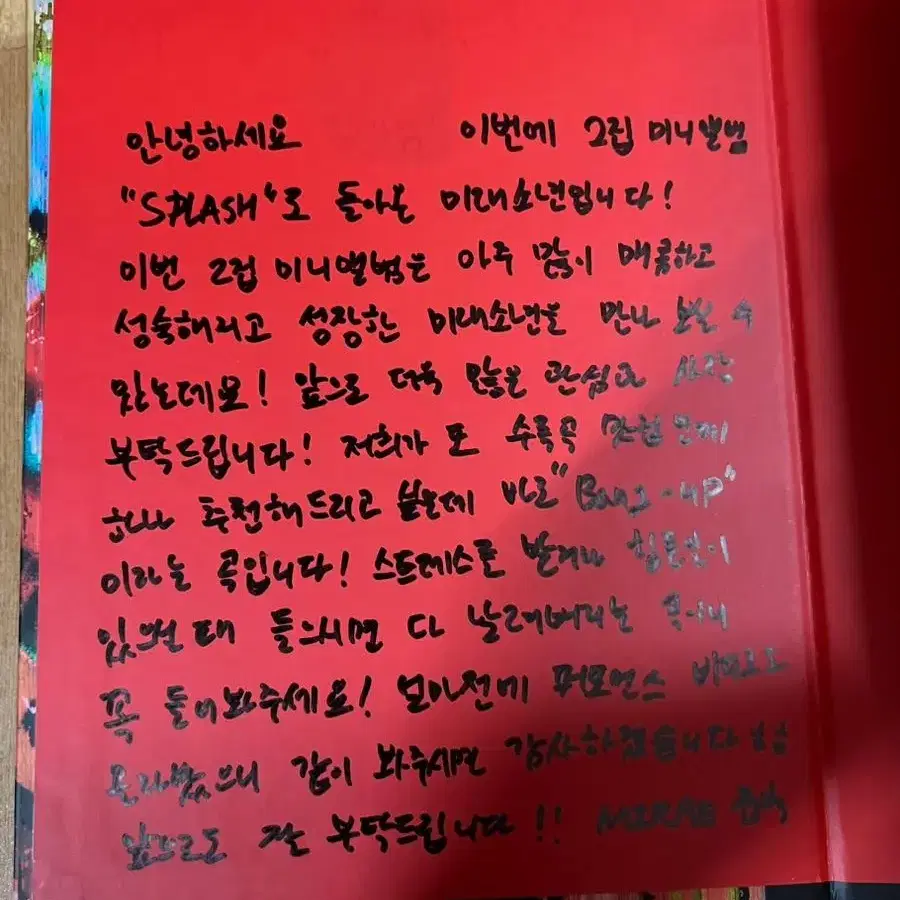 안녕하세요 이번에 2집 미니앨범
"SPLASH"로 돌아온 미래소년입니다!
이번 2집 미니앨범은 아주 많이 매콤하고
성숙해지고 성장한 미래소년을 만나 보실 수
있는데요! 앞으로 더욱 많은 관심과 사랑
부탁드립니다! 저희가 또 수록곡
하나 추천해드리고 싶은데 바로 "Bang-up"
이라는 곡입니다! 스트레스를 받거나 힘든일이
있으실 때 들으시면 다 날려버리는 곡이니
꼭 들어봐주세요! 얼마전에 퍼포먼스 비디오도
올라왔으니 같이 봐주시면 감사하겠습니다
앞으로도 잘 부탁드립니다!! MIRAE